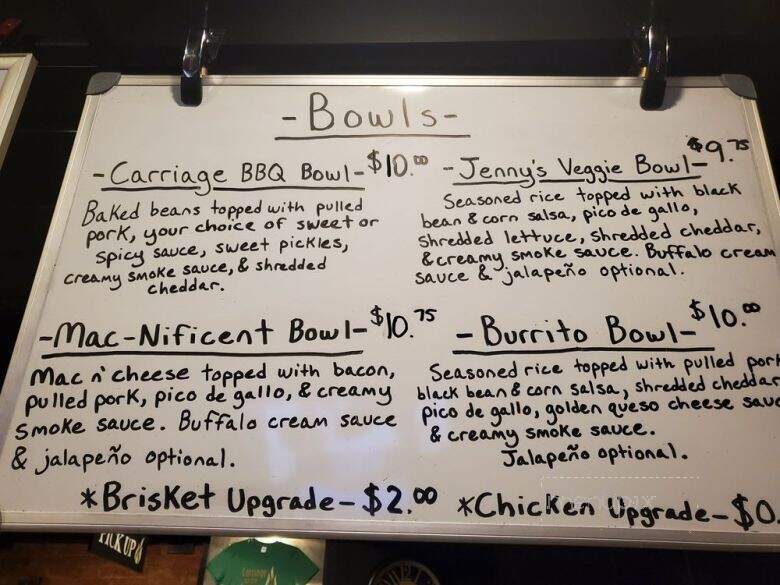 -Bowls-
-Carriage BBQ Bowl- $10.00
Baked beans topped with pulled
pork, your choice of sweet or
spicy sauce, sweet pickles,
creamy smoke sauce, & shredded
cheddar.
-Jenny's Veggie Bowl- $9.75
Seasoned rice topped with black
bean & corn salsa, pico de gallo,
shredded lettuce, shredded cheddar,
& creamy smoke sauce. Buffalo cream
sauce & jalapeño optional.
-Mac-Nificent Bowl- $10.75
Mac n' cheese topped with bacon,
pulled pork, pico de gallo, & creamy
smoke sauce. Buffalo cream sauce
& jalapeño optional.
-Burrito Bowl- $10.00
Seasoned rice topped with pulled pork
black bean & corn salsa, shredded cheddar
pico de gallo, golden queso cheese sauc
& creamy smoke sauce.
Jalapeño optional.
*Brisket Upgrade- $2.00
*Chicken Upgrade- $0.
PICK UP